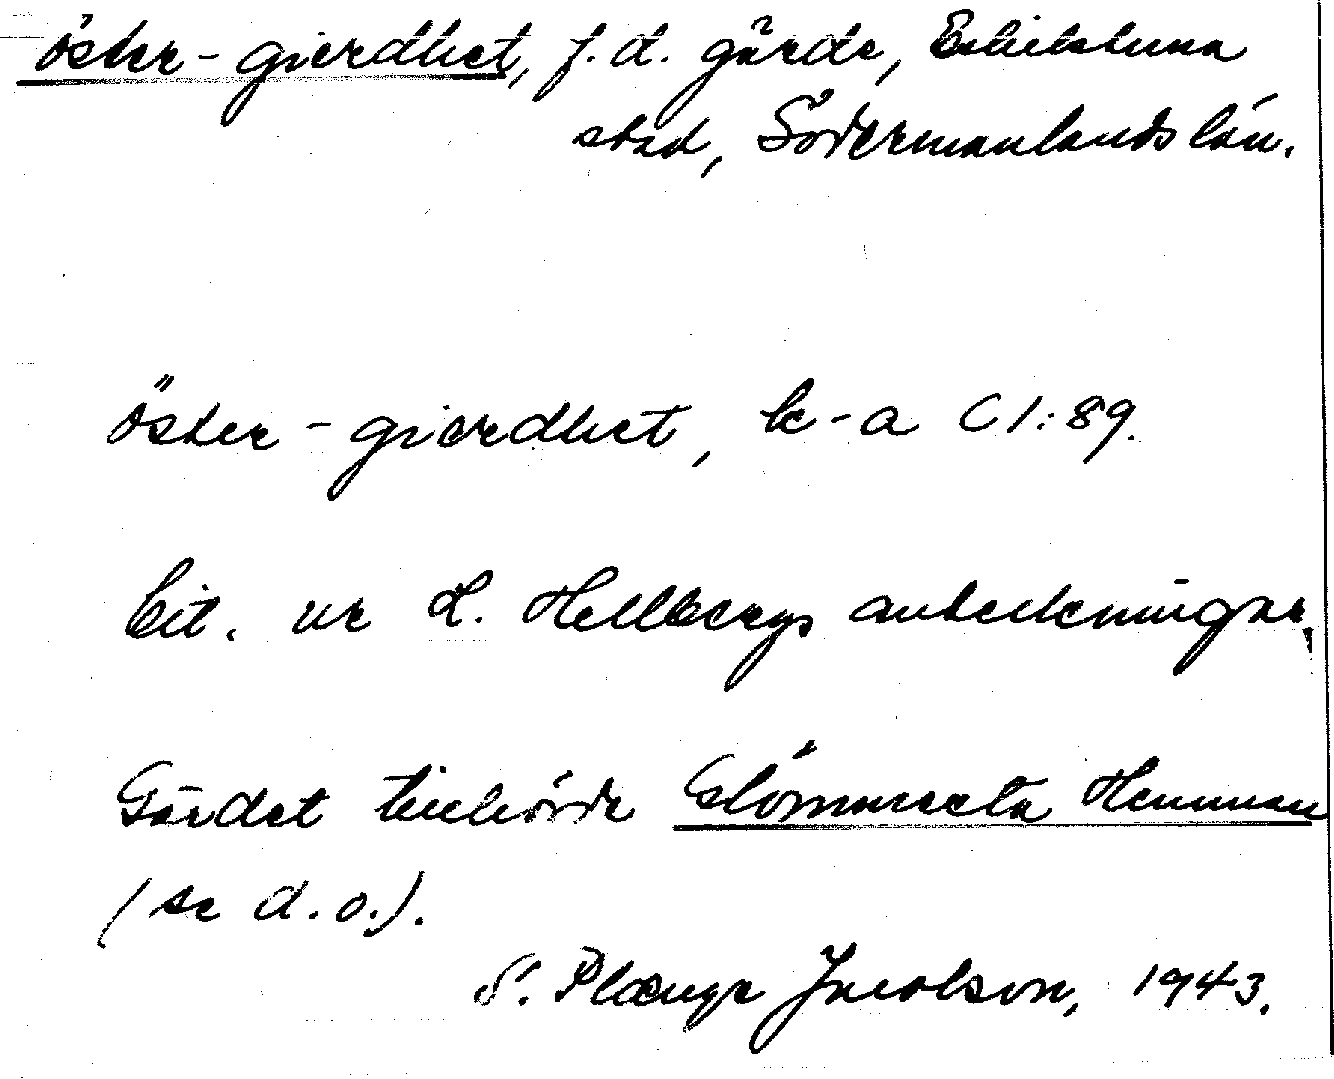 Öster-gierdhet, f.d. gärde, Eskilstuna
stad, Södermanlands län.
Öster-gierdhet, k-a C I:89.
Cit. ur L. Hellbergs anteckningar.
Gärdet tillhörde Glömmesta Hemman
(se d.o.).
S. Plænge Jacobson, 1943.